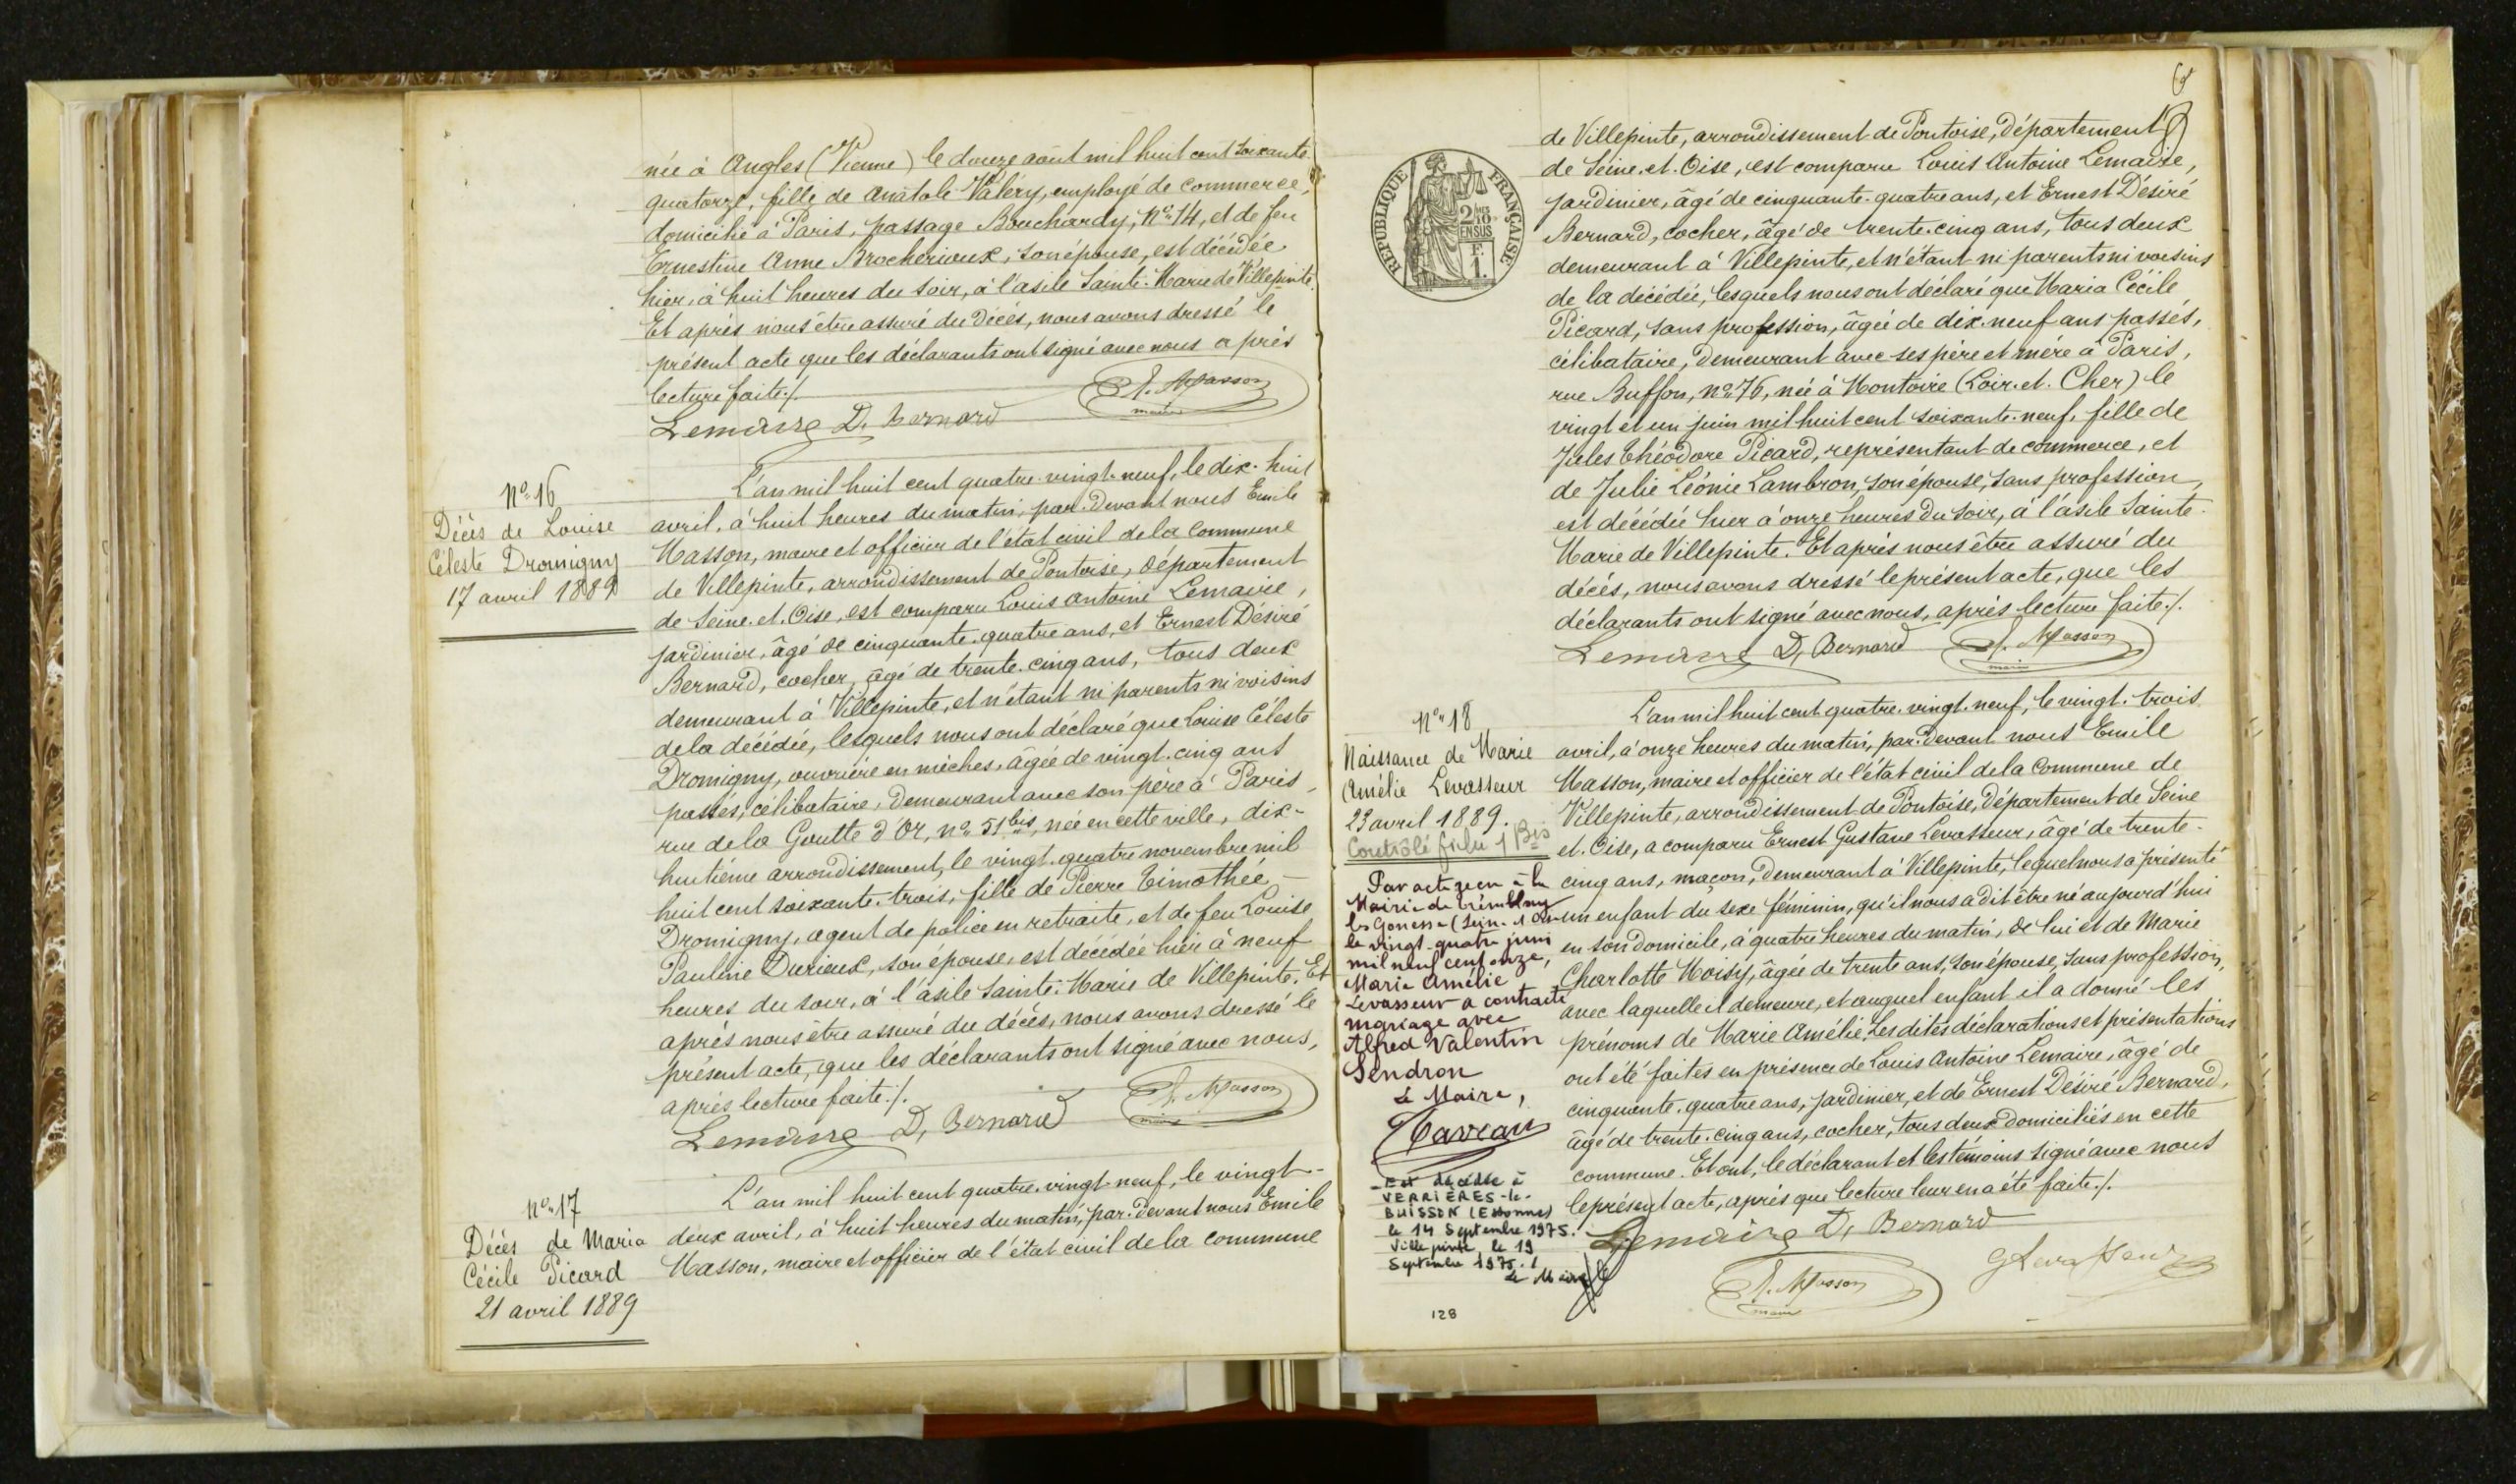 née à Angles (Vienne) le douze août mil huit cent soixante
quatorze, fille de Anatole Valéry, employé de commerce,
domicilié à Paris, passage Bouchardy, No 14, et de feu
Ernestine Anne Brocherioux, son épouse, est décédée
hier, à huit heures du soir, à l'asile Sainte-Marie de Villepinte.
Et après nous être assuré du décès, nous avons dressé le
présent acte que les déclarants ont signé avec nous après
lecture faite./.
Lemaire D. Bernard E. Masson
maire
No 16
Décès de Louise
Céleste Dromigny
17 avril 1889
L'an mil huit cent quatre-vingt-neuf, le dix-huit
avril, à huit heures du matin, par-devant nous Emile
Masson, maire et officier de l'état civil de la commune
de Villepinte, arrondissement de Pontoise, département
de Seine-et-Oise, est comparu Louis Antoine Lemaire,
jardinier, âgé de cinquante-quatre ans, et Ernest Désiré
Bernard, cocher, âgé de trente-cinq ans, tous deux
demeurant à Villepinte, et n'étant ni parents ni voisins
de la décédée, lesquels nous ont déclaré que Louise Céleste
Dromigny, ouvrière en mèches, âgée de vingt-cinq ans
passés, célibataire, demeurant avec son père à Paris,
rue de la Goutte d'Or, no 51 bis, née en cette ville, dix-
huitième arrondissement, le vingt-quatre novembre mil
huit cent soixante-trois, fille de Pierre Timothée
Dromigny, agent de police en retraite, et de feu Louise
Pauline Durieux, son épouse, est décédée hier à neuf
heures du soir, à l'asile Sainte-Marie de Villepinte. Et
après nous être assuré du décès, nous avons dressé le
présent acte, que les déclarants ont signé avec nous,
après lecture faite./.
Lemaire D. Bernard E. Masson
maire
No 17
Décès de Maria
Cécile Picard
21 avril 1889
L'an mil huit cent quatre-vingt-neuf, le vingt-
deux avril, à huit heures du matin, par-devant nous Emile
Masson, maire et officier de l'état civil de la commune
RÉPUBLIQUE FRANÇAISE
2/10
EN SUS
F.
1.
de Villepinte, arrondissement de Pontoise, département
de Seine-et-Oise, est comparu Louis Antoine Lemaire,
jardinier, âgé de cinquante-quatre ans, et Ernest Désiré
Bernard, cocher, âgé de trente-cinq ans, tous deux
demeurant à Villepinte, et n'étant ni parents ni voisins
de la décédée, lesquels nous ont déclaré que Maria Cécile
Picard, sans profession, âgée de dix-neuf ans passés,
célibataire, demeurant avec ses père et mère à Paris,
rue Buffon, no 76, née à Montoire (Loir-et-Cher) le
vingt et un juin mil huit cent soixante-neuf, fille de
Jules Théodore Picard, représentant de commerce, et
de Julie Léonie Lambron, son épouse, sans profession,
est décédée hier à onze heures du soir, à l'asile Sainte-
Marie de Villepinte. Et après nous être assuré du
décès, nous avons dressé le présent acte, que les
déclarants ont signé avec nous, après lecture faite./.
Lemaire D. Bernard E. Masson
maire
No 18
Naissance de Marie
Amélie Levasseur
23 avril 1889.
Contrôlé fiche 1 Bis
Par acte reçu à la
Mairie de Trembley
les Gonesse (Seine et Oise
le vingt-quatre juin
mil neuf cent onze,
Marie Amélie
Levasseur a contracté
mariage avec
Alfred Valentin
Sendron
Le Maire,
Est décédée à
VERRIÈRES-le-
BUISSON (Essonne)
le 14 Septembre 1975.
Villepinte, le 19
Septembre 1975./
Le Maire
L'an mil huit cent quatre-vingt-neuf, le vingt-trois
avril, à onze heures du matin, par-devant nous Emile
Masson, maire et officier de l'état civil de la Commune de
Villepinte, arrondissement de Pontoise, département de Seine
et-Oise, a comparu Ernest Gustave Levasseur, âgé de trente-
cinq ans, maçon, demeurant à Villepinte, lequel nous a présenté
un enfant du sexe féminin, qu'il nous a dit être né aujourd'hui
en son domicile, à quatre heures du matin, de lui et de Marie
Charlotte Moisy, âgée de trente ans, son épouse, sans profession,
avec laquelle il demeure, et auquel enfant il a donné les
prénoms de Marie Amélie. Les dites déclarations et présentations
ont été faites en présence de Louis Antoine Lemaire, âgé de
cinquante-quatre ans, jardinier, et de Ernest Désiré Bernard,
âgé de trente-cinq ans, cocher, tous deux domiciliés en cette
commune. Et ont, le déclarant et les témoins signé avec nous
le présent acte, après que lecture leur en a été faite./.
Lemaire D. Bernard
G Levasseur
E. Masson
maire
128